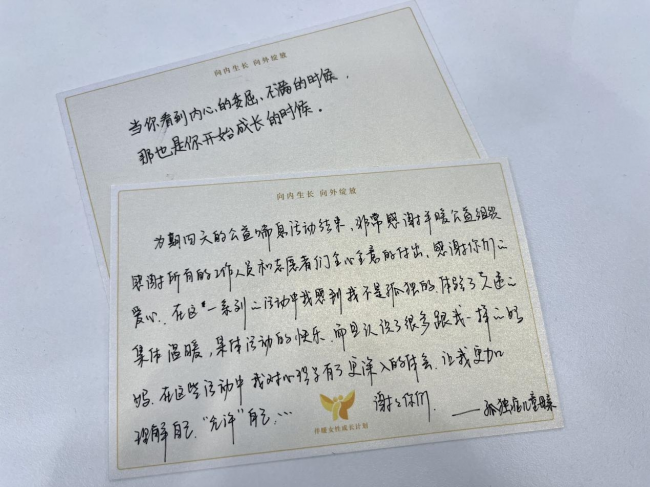 向内生长 向外绽放
当你看到内心的委屈、不满的时候，
那也是你开始成长的时候。
向内生长 向外绽放
为期四天的公益喘息活动结束，非常感谢伴暖公益组织
感谢所有的工作人员和志愿者们全心全意的付出，感谢你们的
爱心。在这一系列的活动中我感到我不是孤独的，体验了久违的
集体温暖，集体活动的快乐，而且认识了很多跟我一样的妈
妈，在这些活动中我对心理学有了更深入的体会，让我更加
理解自己，“允许”自己，…
谢谢你们
——孤独症儿童母亲
伴暖女性成长计划